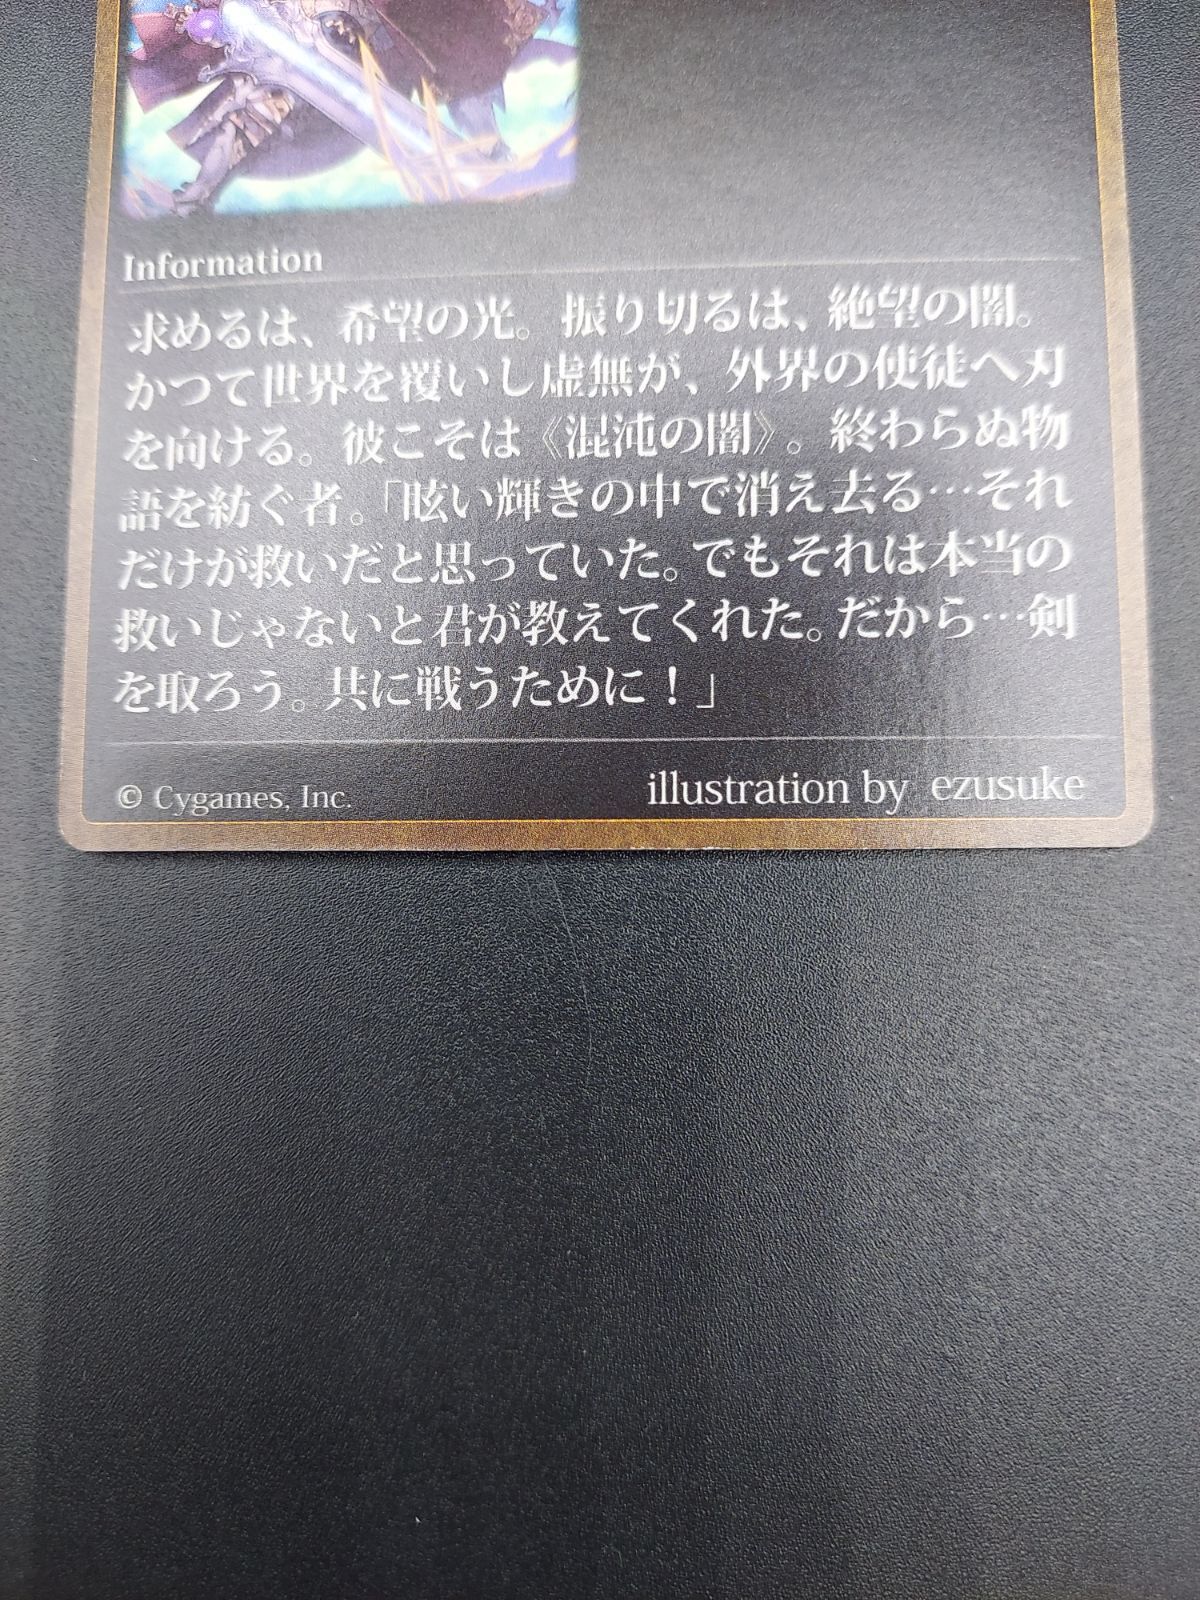 Information
求めるは、希望の光。振り切るは、絶望の闇。
かつて世界を覆いし虚無が、外界の使徒へ刃
を向ける。彼こそは《混沌の闇》。終わらぬ物
語を紡ぐ者。「眩い輝きの中で消え去る…それ
だけが救いだと思っていた。でもそれは本当の
救いじゃないと君が教えてくれた。だから…剣
を取ろう。共に戦うために！」
© Cygames, Inc.
illustration by ezusuke